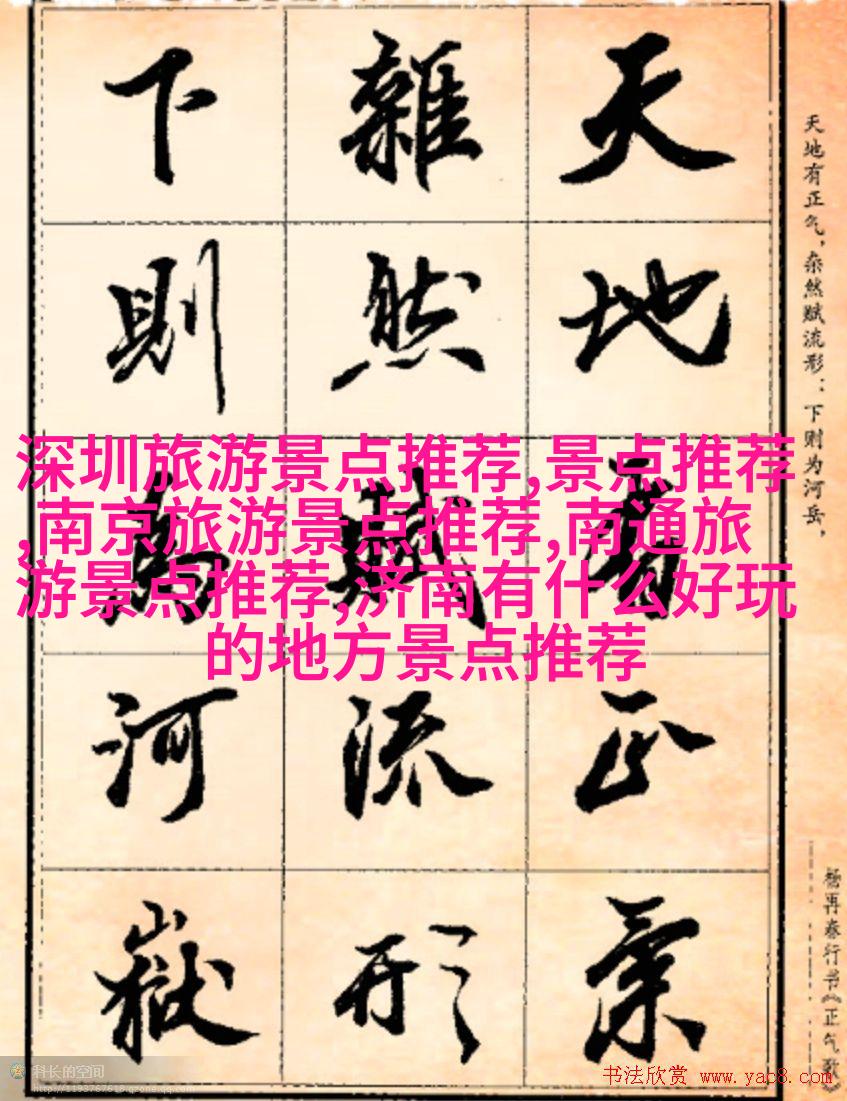 天地有正氣
雜然賦流形
下則為河嶽
天地有正气，杂然赋流形；下则为河岳，
杨再春行书《正气歌》
深圳旅游景点推荐,景点推荐
,南京旅游景点推荐,南通旅
游景点推荐,济南有什么好玩
的地方景点推荐
科长的空间
http://1193767618.qzone.qq.com
书法欣赏 www.yac8.com